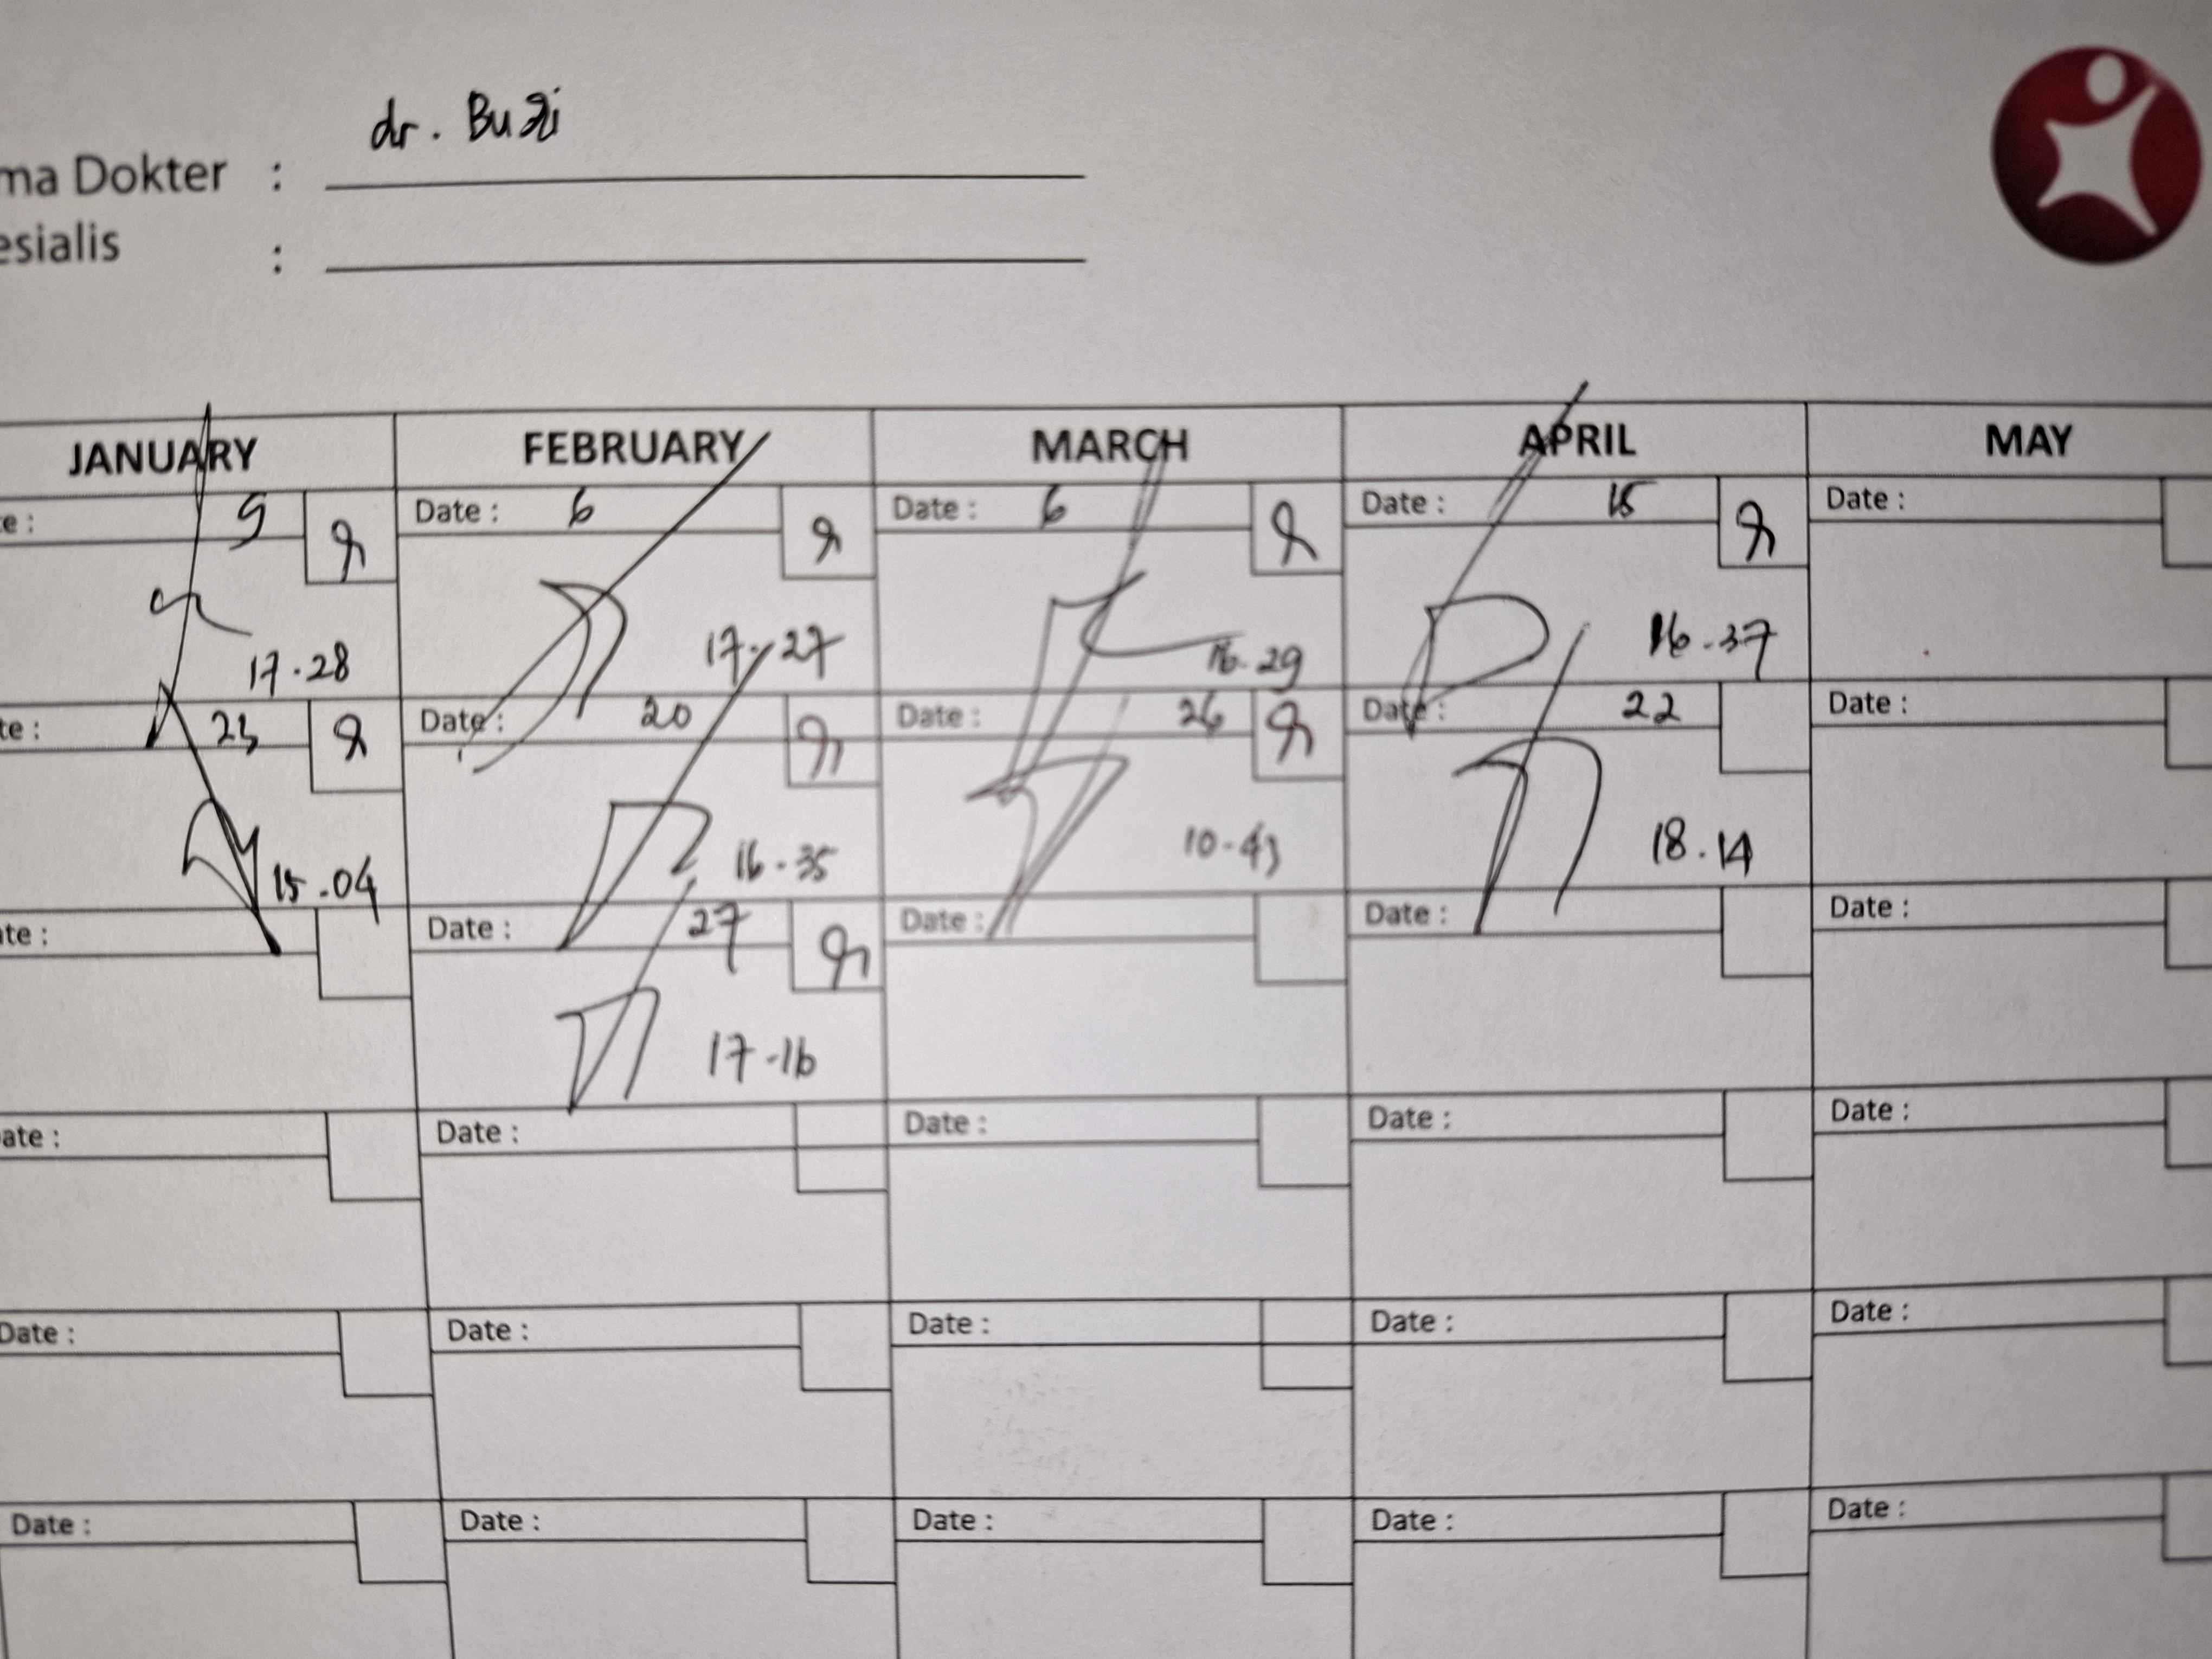 dr. Buzi
ma Dokter :
esialis :
JANUARY FEBRUARY MARCH APRIL MAY
e : 9 Date : 6 Date : 6 Date : 15 Date :
17.28 17.27 16.29 16.37
te : 23 Date : 20 Date : 26 Date : 22 Date :
15.04 16.35 10.43 18.14
ate : Date : 27 Date : Date : Date :
17.16
ate : Date : Date : Date : Date :
Date : Date : Date : Date : Date :
Date : Date : Date : Date : Date :